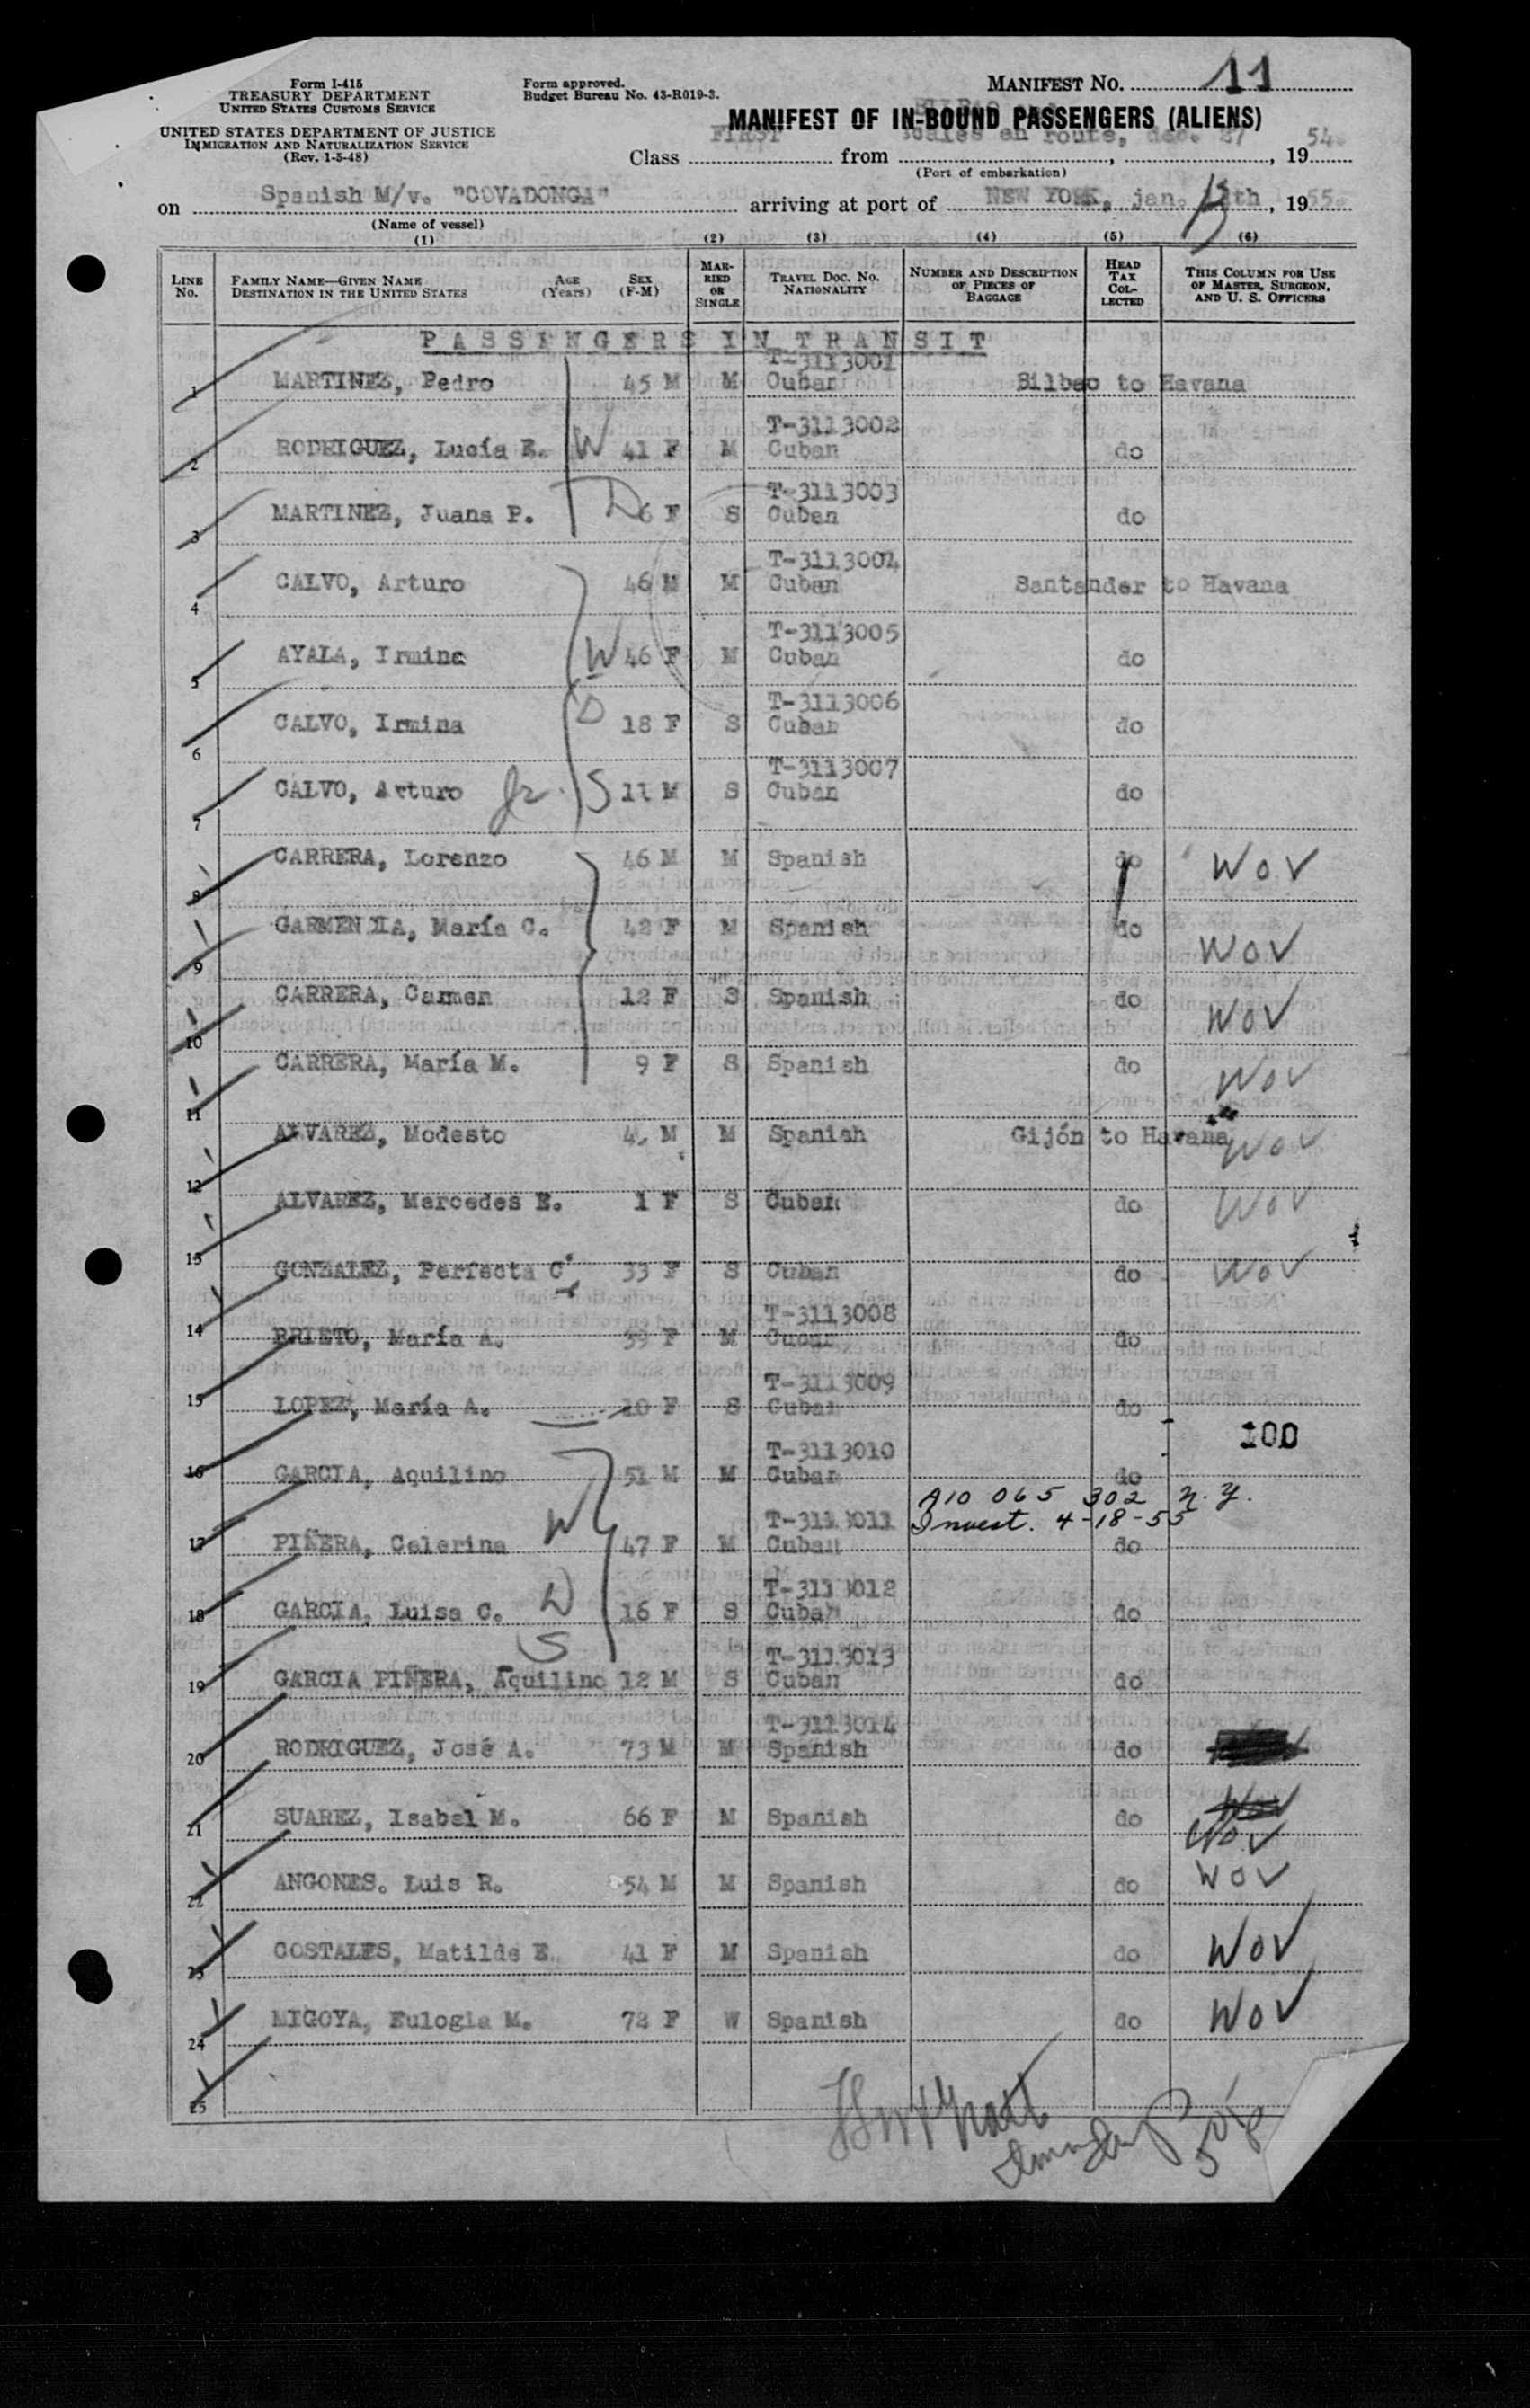 Form I-415
TREASURY DEPARTMENT
UNITED STATES CUSTOMS SERVICE
UNITED STATES DEPARTMENT OF JUSTICE
IMMIGRATION AND NATURALIZATION SERVICE
(Rev. 1-5-48)
Form approved.
Budget Bureau No. 43-R019-3.
MANIFEST No. 11
MANIFEST OF IN-BOUND PASSENGERS (ALIENS)
Class FIRST from scales en route, dec. 27, 1954.
(Port of embarkation)
on Spanish M/v. "COVADONGA" arriving at port of NEW YORK, jan. 13th, 1955.
(Name of vessel)
(1) (2) (3) (4) (5) (6)
LINE No. FAMILY NAME—GIVEN NAME DESTINATION IN THE UNITED STATES AGE (Years) SEX (F-M) MARRIED OR SINGLE TRAVEL DOC. No. NATIONALITY NUMBER AND DESCRIPTION OF PIECES OF BAGGAGE HEAD TAX COLLECTED THIS COLUMN FOR USE OF MASTER, SURGEON, AND U. S. OFFICERS
PASSENGERS IN TRANSIT
T-3113001
1 MARTINEZ, Pedro 45 M M Cuban Bilbao to Havana
T-3113002
2 RODRIGUEZ, Lucía E. W 41 F M Cuban do
T-3113003
3 MARTINEZ, Juana P. D 6 F S Cuban do
T-3113004
4 CALVO, Arturo 46 M M Cuban Santander to Havana
T-3113005
5 AYALA, Irmina W 46 F M Cuban do
T-3113006
6 CALVO, Irmina D 18 F S Cuban do
T-3113007
7 CALVO, Arturo Jr. S 11 M S Cuban do
8 CARRERA, Lorenzo 46 M M Spanish do WOV
9 GARMENDIA, María C. 42 F M Spanish do WOV
10 CARRERA, Carmen 12 F S Spanish do WOV
11 CARRERA, María M. 9 F S Spanish do WOV
12 ALVAREZ, Modesto M M Spanish Gijón to Havana WOV
13 ALVAREZ, Mercedes E. 1 F S Cuban do WOV
GONZALEZ, Perfecta C. 33 F S Cuban do WOV
T-3113008
14 PRIETO, María A. 39 F M Cuban do
T-3113009
15 LOPEZ, María A. 10 F S Cuban do
100
T-3113010
16 GARCIA, Aquilino 51 M M Cuban do
A10 065 302 N.Y.
T-3113011 Invest. 4-18-55
17 PIÑERA, Celerina W 47 F M Cuban do
T-3113012
18 GARCIA, Luisa C. D 16 F S Cuban do
S T-3113013
19 GARCIA PIÑERA, Aquilino 12 M S Cuban do
T-3113014
20 RODRIGUEZ, José A. 73 M M Spanish do
WOV
21 SUAREZ, Isabel M. 66 F M Spanish do WOV
22 ANGONES. Luis R. 54 M M Spanish do WOV
23 COSTALES, Matilde E. 41 F M Spanish do WOV
24 MIGOYA, Eulogia M. 72 F W Spanish do WOV
25